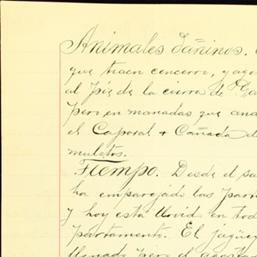 Animales Dañinos.
que traen cencerro, y ago
al pié de la cierra de Ga
pero en manadas que and
el Caporal + Cañada d
muletos.
Tiempo. Desde el sa
ha emparejado las part
y hoy esta llovid en tod
partamento. El jagüey
llenado pero el agost